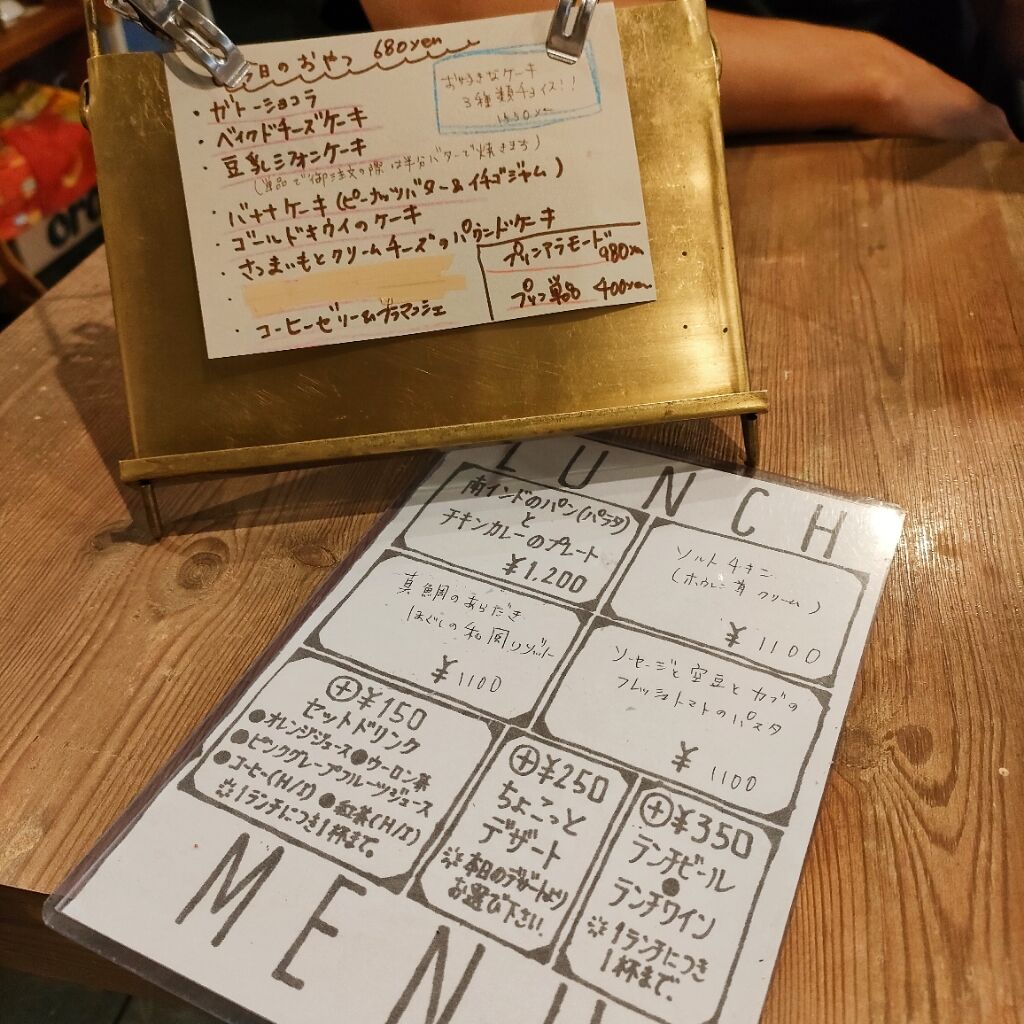 今日のおやつ 680yen
お好きなケーキ
3種類チョイス!!
・ガトーショコラ
・ベイクドチーズケーキ
・豆乳シフォンケーキ
・バナナケーキ(ピーナッツバター&イチゴジャム)
・ゴールドキウイのケーキ
・さつまいもとクリームチーズのパウンドケーキ
・コーヒーゼリー
プリンアラモード
980yen
プリン単品 400yen
LUNCH
南インドのパン(パラタ)
と
チキンカレーのプレート
¥1,200
ソルトチキン
(ホウレン草クリーム)
¥1100
真鯛のあらだき
ほぐしの和風リゾット
¥1100
ソーセージと空豆とカブの
フレッシュトマトのパスタ
¥1100
⊕¥150
セットドリンク
●オレンジジュース●ウーロン茶
●ピンクグレープフルーツジュース
●コーヒー(H/I)●紅茶(H/I)
※1ランチにつき1杯まで。
⊕¥250
ちょこっと
デザート
※本日のデザートより
お選び下さい。
⊕¥350
ランチビール
●
ランチワイン
※1ランチにつき
1杯まで。
MENU